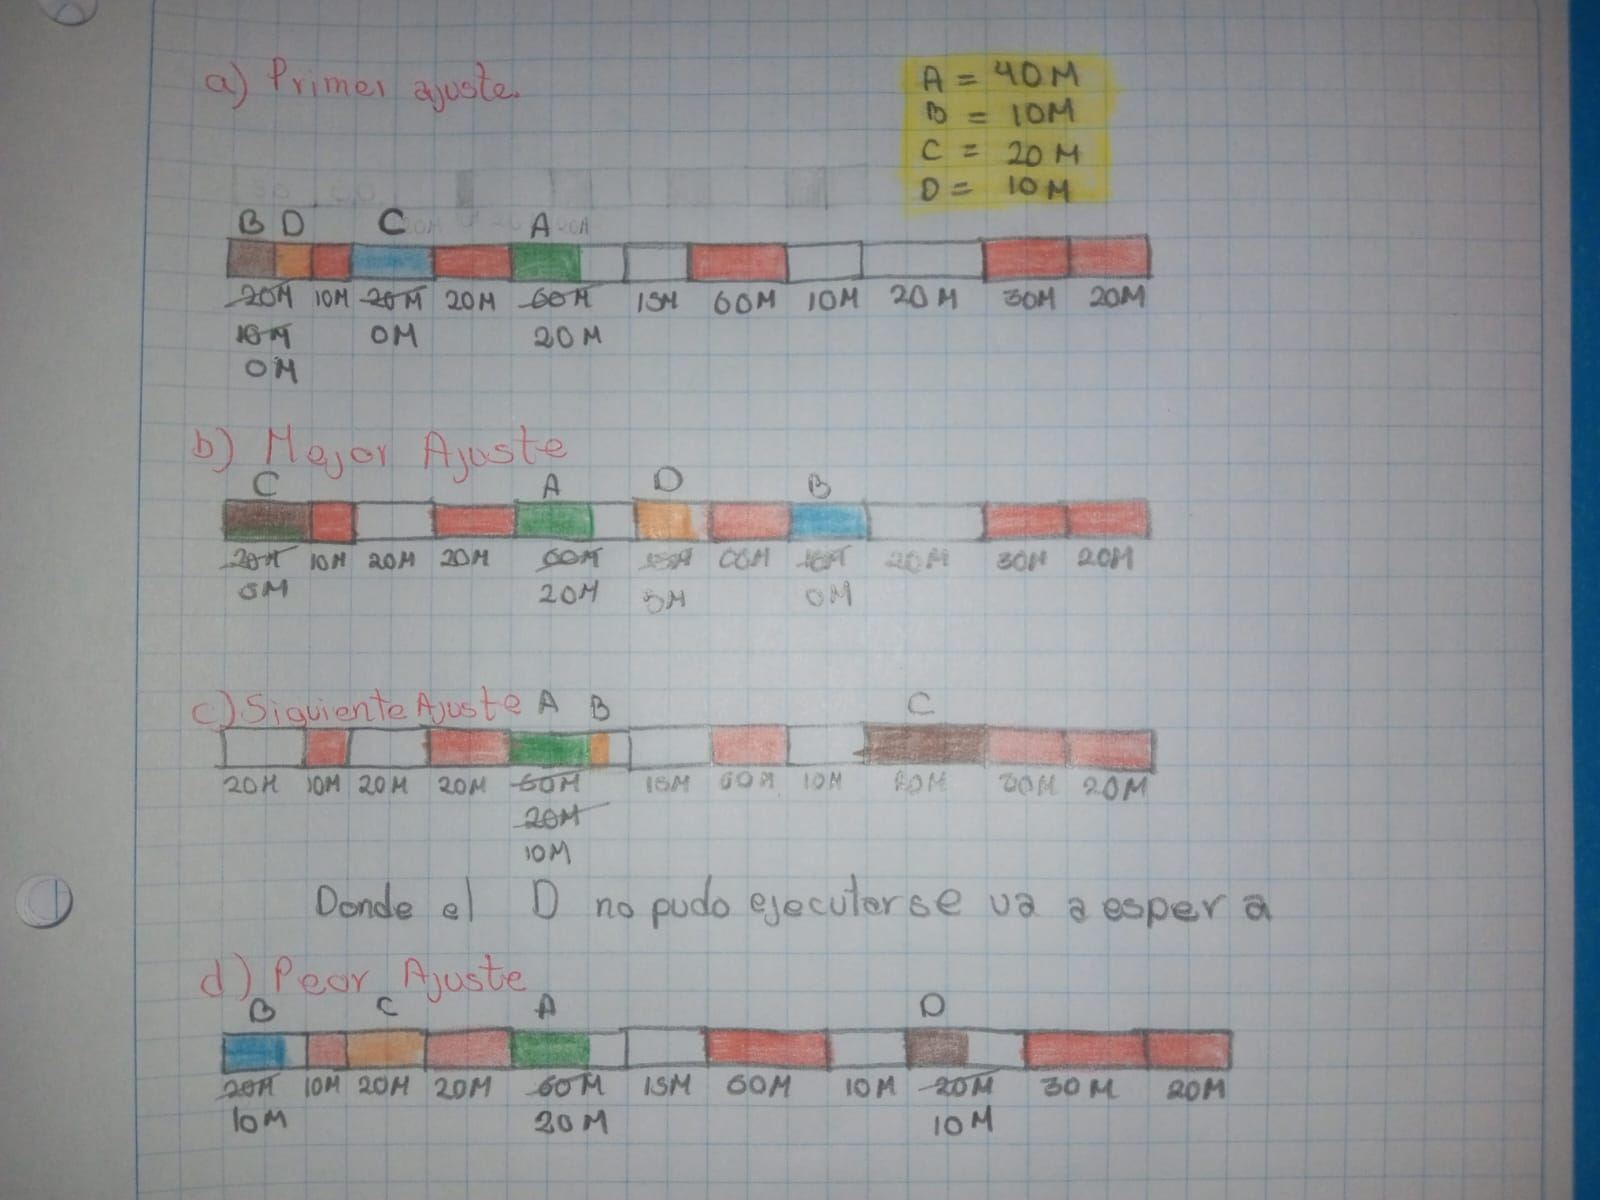 a) Primer ajuste.
A = 40M
B = 10M
C = 20 M
D = 10M
B D C A
20M 10M 20M 20M 60M 15M 60M 10M 20M 30M 20M
10M 0M 20M
0M
b) Mejor Ajuste
C A D B
20M 10M 20M 20M 60M 15M 60M 10M 20M 30M 20M
0M 20M 5M 0M
c) Siguiente Ajuste A B C
20M 10M 20M 20M 60M 15M 60M 10M 20M 30M 20M
20M
10M
Donde el D no pudo ejecutarse va a espera
d) Peor Ajuste
B C A D
20M 10M 20M 20M 60M 15M 60M 10M 20M 30M 20M
10M 20M 10M